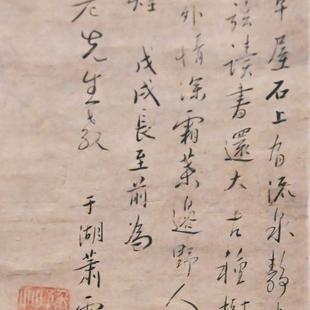 屋石上有流泉
讀書還大古種樹
外情深霜葉邊野人
戊戌長至前為
老先生教
于湖蕭雲